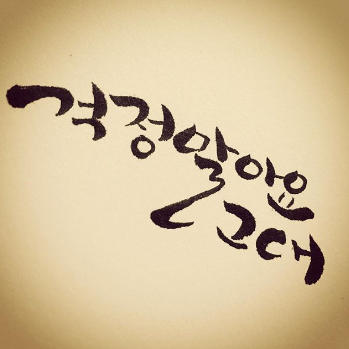 걱정말아요
그대